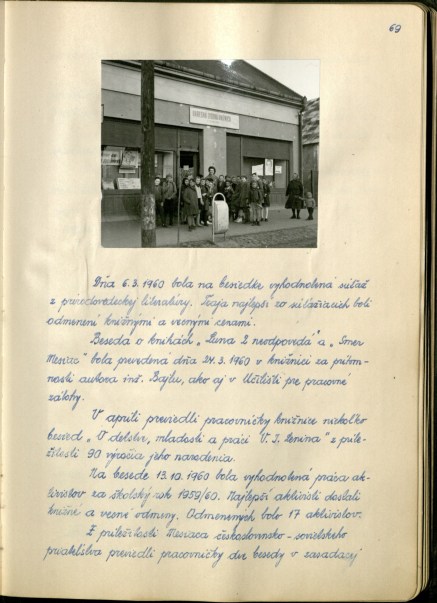 69
Dňa 6.3.1960 bola na besiedke vyhodnotená súťaž
z prírodovedeckej literatúry. Traja najlepší zo súťažiacich boli
odmenení knižnými a vecnými cenami.
Beseda o knihách „Luna 2 neodpovedá" a „Smer
Mesiac" bola prevedená dňa 24.3.1960 v knižnici za prítom-
nosti autora inž. Bajlu, ako aj v Učilišti pre pracovné
zálohy.
V apríli previedli pracovníčky knižnice niekoľko
besied „O detstve, mladosti a práci V. I. Lenina" z príle-
žitosti 90 výročia jeho narodenia.
Na besede 13.10.1960 bola vyhodnotená práca ak-
tivistov za školský rok 1959/60. Najlepší aktivisti dostali
knižné a vecné odmeny. Odmenených bolo 17 aktivistov.
Z príležitosti Mesiaca československo-sovietskeho
priateľstva previedli pracovníčky dve besedy v zasadacej